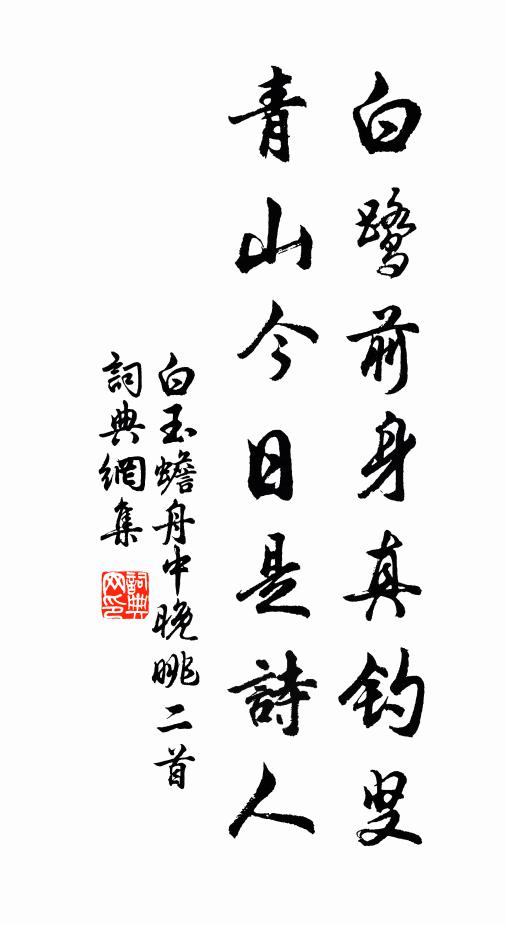 白鹭前身真钓叟
青山今日是詩人
白玉蟾舟中晚眺二首
詞典網集
詞典网印